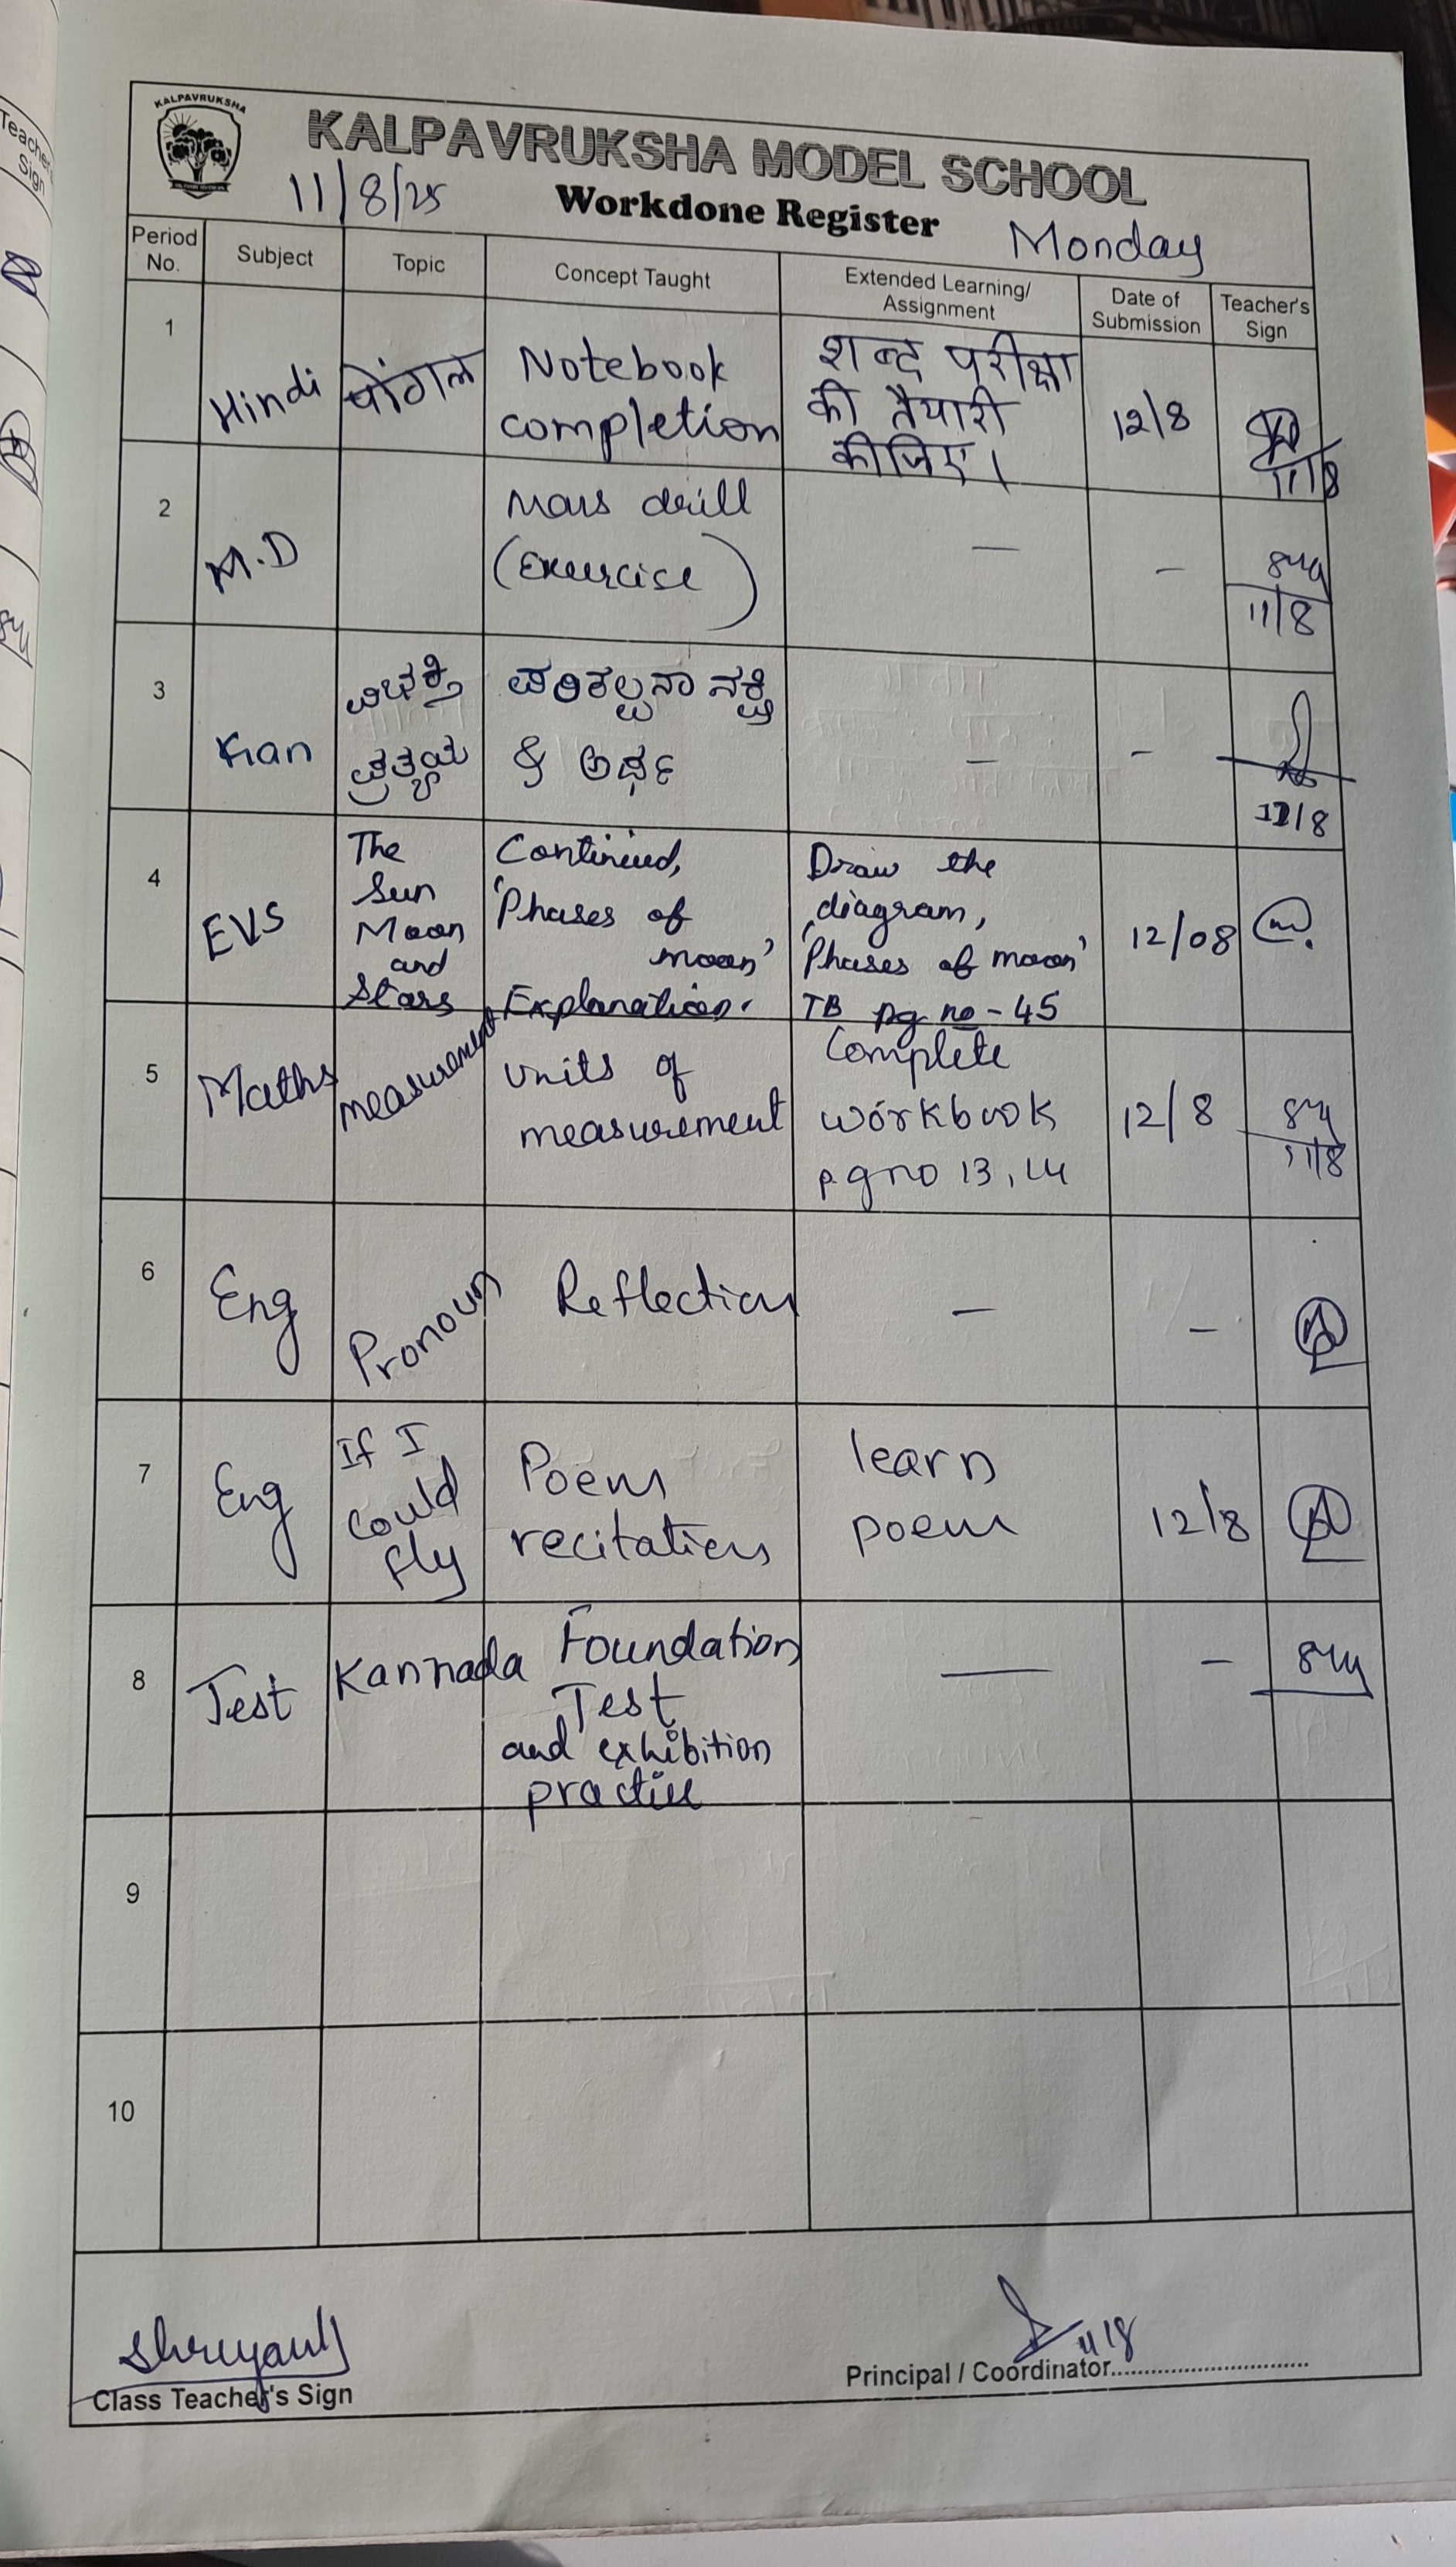 KALPAVRUKSHA
KALPAVRUKSHA MODEL SCHOOL
11/8/25 Workdone Register Monday
Period No. Subject Topic Concept Taught Extended Learning/ Assignment Date of Submission Teacher's Sign
1 Hindi पोंगल Notebook completion शब्द परीक्षा की तैयारी कीजिए। 12/8 11/8
2 M.D Mass drill (Exercise) — - 11/8
3 Kan ವಿಭಕ್ತಿ ಪ್ರತ್ಯಯ ಪರಿಕಲ್ಪನಾ ನಕ್ಷೆ & ಅರ್ಥ — - 12/8
4 EVS The Sun Moon and Stars Continued, 'Phases of moon' Explanation. Draw the diagram, 'Phases of moon' TB pg no - 45 12/08
5 Maths measurement units of measurement Complete workbook pg no 13, 14 12/8 11/8
6 Eng Pronoun Reflection — -
7 Eng If I could fly Poem recitation learn poem 12/8
8 Test Kannada Foundation Test and exhibition practice — -
9
10
11/8
Class Teacher's Sign Principal / Coordinator
Teacher's
Sign